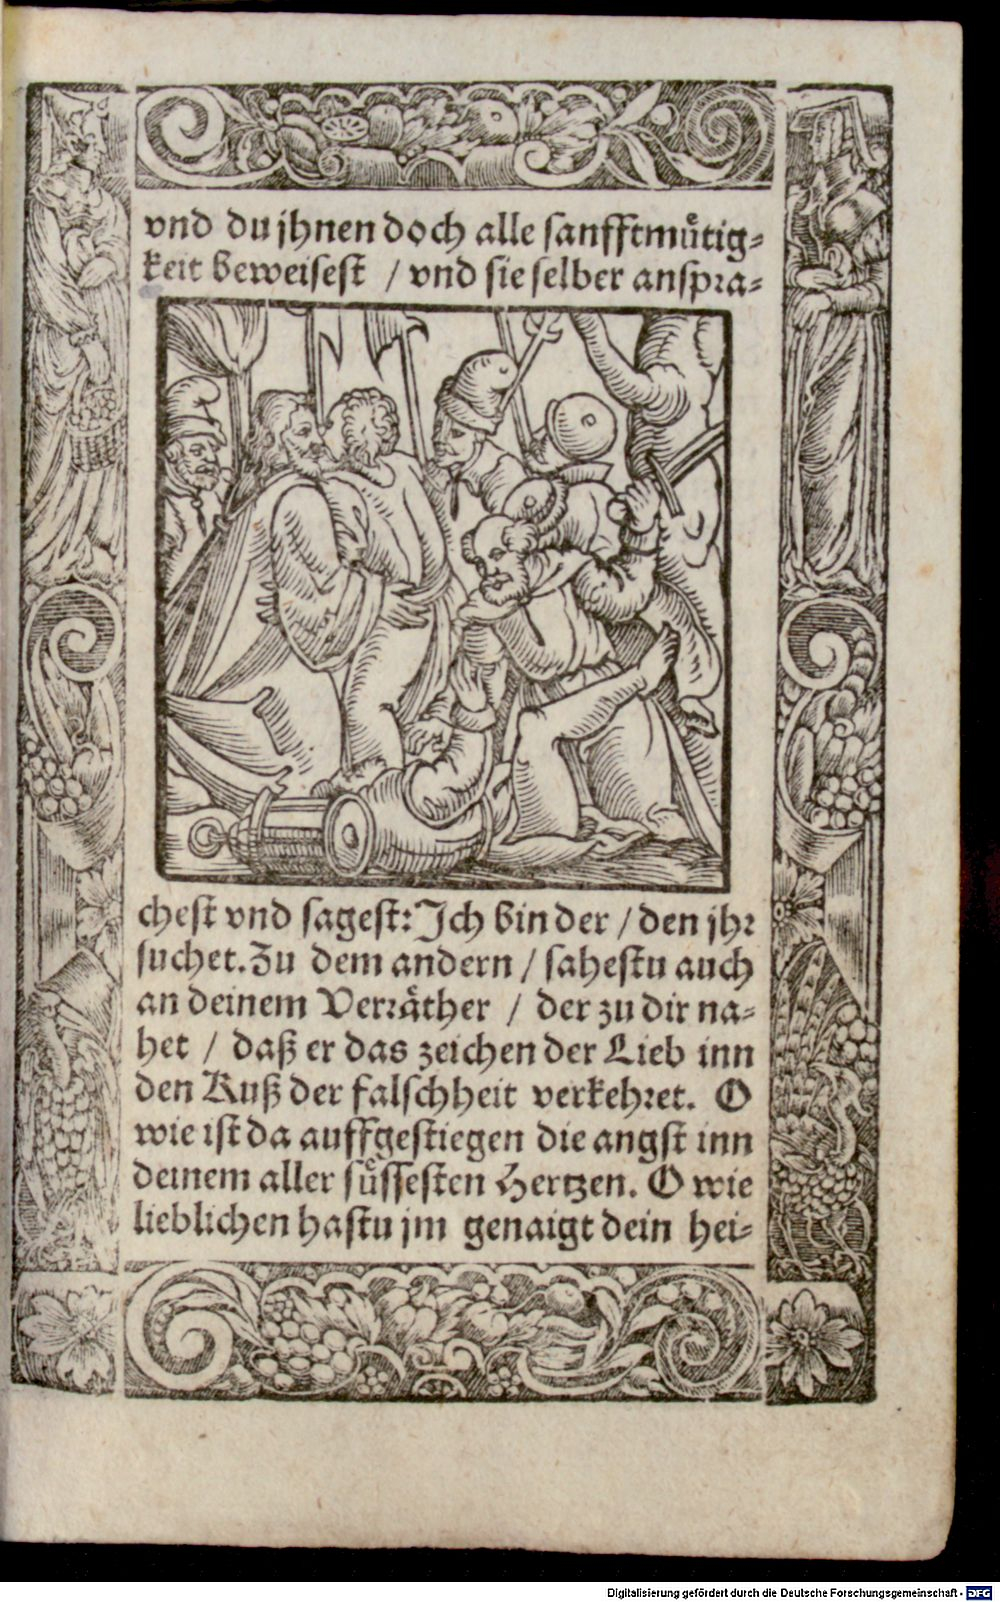 vnd du jhnen doch alle sanfftmuͤtig⸗
keit beweisest / vnd sie selber anspra⸗
chest vnd sagest: Ich bin der / den jhr
suchet. Zu dem andern / sahestu auch
an deinem Verraͤther / der zu dir na⸗
het / daß er das zeichen der Lieb inn
den Kuß der falschheit verkehret. O
wie ist da auffgestiegen die angst inn
deinem aller suͤssesten Hertzen. O wie
lieblichen hastu jm genaigt dein hei⸗
Digitalisierung gefördert durch die Deutsche Forschungsgemeinschaft - DFG